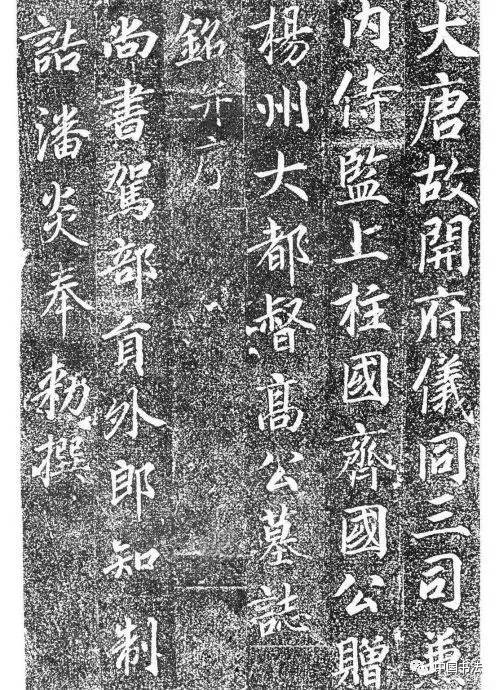 大唐故開府儀同三司兼
内侍監上柱國齊國公贈
楊州大都督高公墓誌
銘并序
尚書駕部貟外郎知制
誥潘炎奉勑撰
中国书法